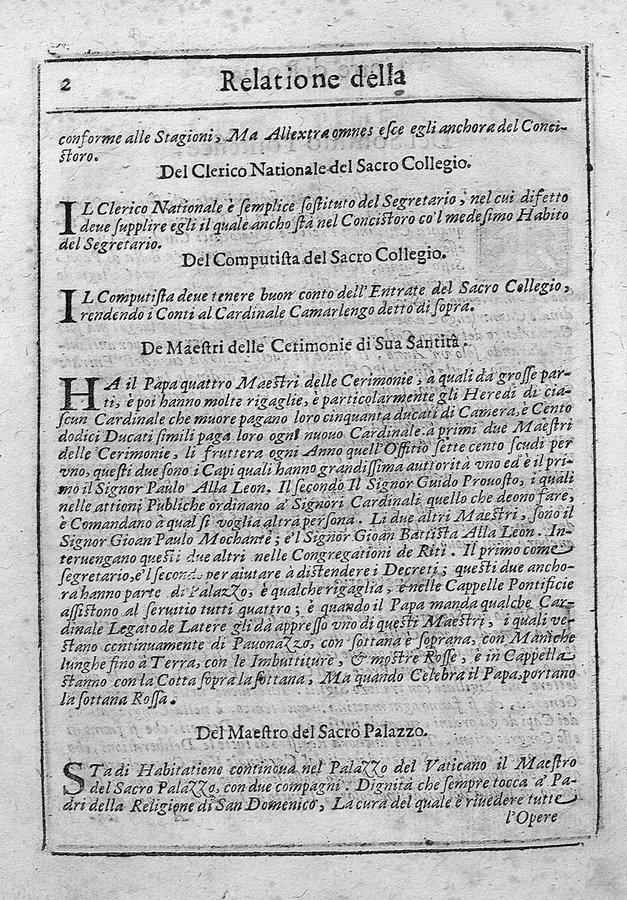 2
Relatione della
conforme alle Stagioni, Ma Allextra omnes esce egli anchora del Conci-
storo.
Del Clerico Nationale del Sacro Collegio.
IL Clerico Nationale è semplice sostituto del Segretario, nel cui difetto
deve supplire egli il quale ancho stà nel Concistoro co'l medesimo Habito
del Segretario.
Del Computista del Sacro Collegio.
IL Computista deve tenere buon conto dell'Entrate del Sacro Collegio,
rendendo i Conti al Cardinale Camarlengo detto di sopra.
De Maestri delle Cerimonie di Sua Santità.
HA il Papa quattro Maestri delle Cerimonie, à quali da grosse par-
ti, è poi hanno molte rigaglie, è particolarmente gli Heredi di cia-
scun Cardinale che muore pagano loro cinquanta ducati di Camera, è Cento
dodici Ducati simili paga loro ogni nuouo Cardinale. à primi due Maestri
delle Cerimonie, li frutterà ogni Anno quell'Offitio sette cento scudi per
vno, questi due sono i Capi quali hanno grandissima autiorità vno ed è il pri-
mo il Signor Paulo Alla Leon. Il secondo Il Signor Guido Prouosto, i quali
nelle attioni Publiche ordinano à Signori Cardinali quello che deono fare,
è Comandano à qual si voglia altra persona. Li due altri Maestri, sono il
Signor Gioan Paulo Mochante; è'l Signor Gioan Battista Alla Leon. In-
teruengano questi due altri nelle Congregationi de Riti. Il primo come
segretario, è'l secondo per aiutare à distendere i Decreti; questi due ancho-
ra hanno parte di Palazzo, è qualche rigaglia, è nelle Cappelle Pontificie
assistono al seruitio tutti quattro; è quando il Papa manda qualche Car-
dinale Legato de Latere gli dà appresso vno di questi Maestri, i quali ve-
stano continuamente di Pauonazzo, con sottana è soprana, con Maniche
lunghe fino à Terra, con le Imbuttiture, & mostre Rosse, è in Cappella
stanno con la Cotta sopra la sottana, Ma quando Celebra il Papa, portano
la sottana Rossa.
Del Maestro del Sacro Palazzo.
STa di Habitatione continoua nel Palazzo del Vaticano il Maestro
del Sacro Palazzo, con due compagni. Dignità che sempre tocca à Pa-
dri della Religione di San Domenico, La cura del quale è riuedere tutte
l'Opere